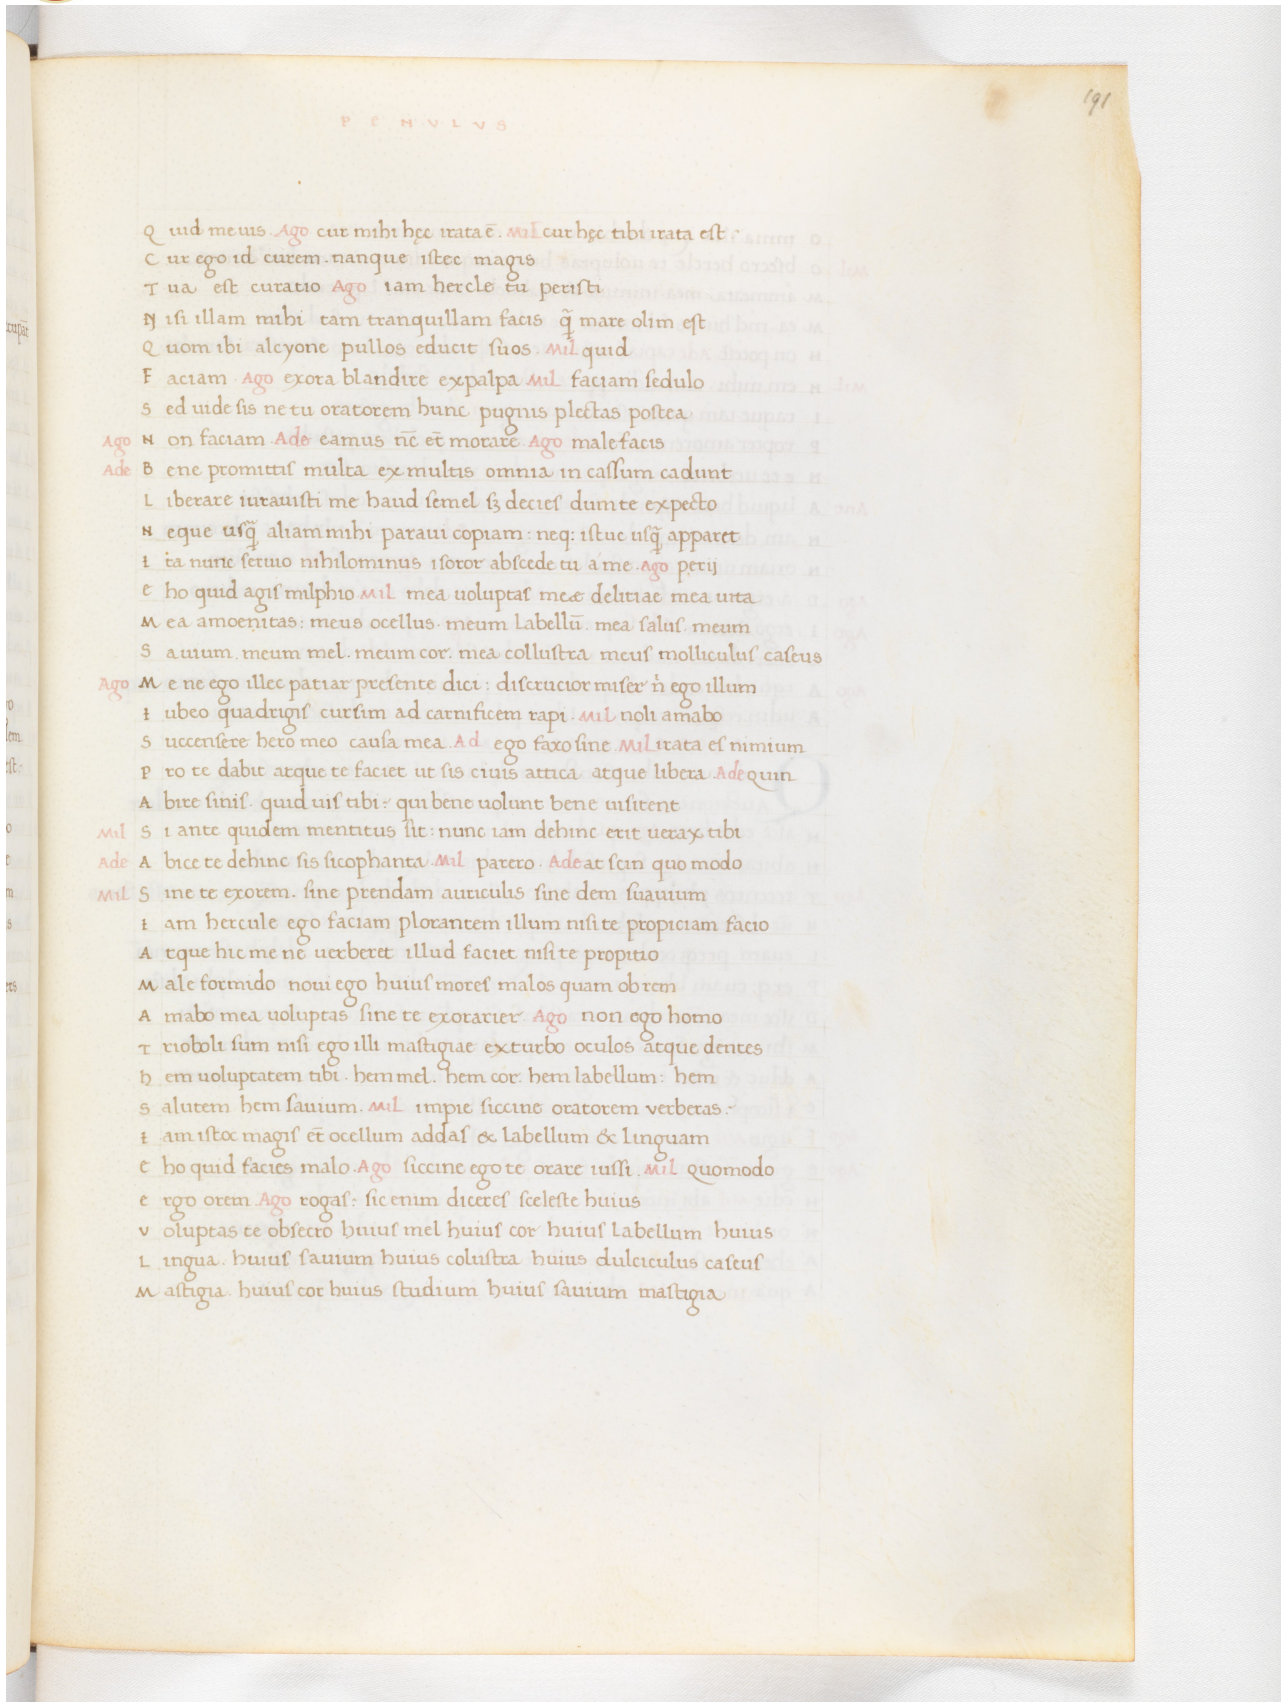 191
PENVLVS
Quid me uis. Ago cur mihi hęc irata ē. Mil cur hęc tibi irata est
Cur ego id curem. nanque istec magis
Tua est curatio Ago iam hercle tu peristi
Nisi illam mihi tam tranquillam facis q̄ mare olim est
Quom ibi alcyone pullos educit suos. Mil quid
Faciam. Ago exora blandire expalpa Mil faciam sedulo
Sed uide sis ne tu oratorem hunc pugnis plectas postea
Ago Non faciam Ade eamus nc̄ et morare Ago male facis
Ade Bene promittis multa ex multis omnia in cassum cadunt
Liberare iurauisti me haud semel sꝫ decies dum te expecto
Neque usq̄ aliam mihi paraui copiam: neq: istuc usq̄ apparet
Ita nunc seruio nihilominus isoror abscede tu á me. Ago perij
Eho quid agis milphio Mil mea uoluptas meæ delitiae mea uita
Mea amoenitas: meus ocellus. meum labellū. mea salus. meum
Sauium. meum mel. meum cor. mea collustra meus molliculus caseus
Ago Mene ego illec patiar presente dici: discrucior miser ṅ ego illum
Iubeo quadrigis cursim ad carnificem rapi. Mil noli amabo
Succensere hero meo causa mea. Ad ego faxo sine Mil irata es nimium
Pro te dabit atque te faciet ut sis ciuis attica atque libera. Ade quin
Abire sinis. quid uis tibi: qui bene uolunt bene uisitent
Mil Si ante quidem mentitus sit: nunc iam dehinc erit uerax tibi
Ade Abice te dehinc sis sicophanta. Mil parero. Ade at scin quo modo
Mil Sine te exorem. sine prendam auriculis sine dem suauium
Iam hercule ego faciam plorantem illum nisi te propiciam facio
Atque hic me ne uerberet illud faciet nisi te propitio
Male formido noui ego huius mores malos quam ob rem
Amabo mea uoluptas sine te exorarier. Ago non ego homo
Trioboli sum nisi ego illi mastigiae exturbo oculos atque dentes
Hem uoluptatem tibi. hem mel. hem cor. hem labellum: hem
Salutem hem sauium. Mil impie siccine oratorem verberas.
Iam istoc magis et ocellum addas & labellum & linguam
Eho quid facies malo. Ago siccine ego te orare iussi. Mil quomodo
Ergo orem. Ago rogas: sic enim diceres sceleste huius
Voluptas te obsecro huius mel huius cor huius labellum huius
Lingua. huius sauium huius colustra huius dulciculus caseus
Mastigia. huius cor huius studium huius sauium mastigia